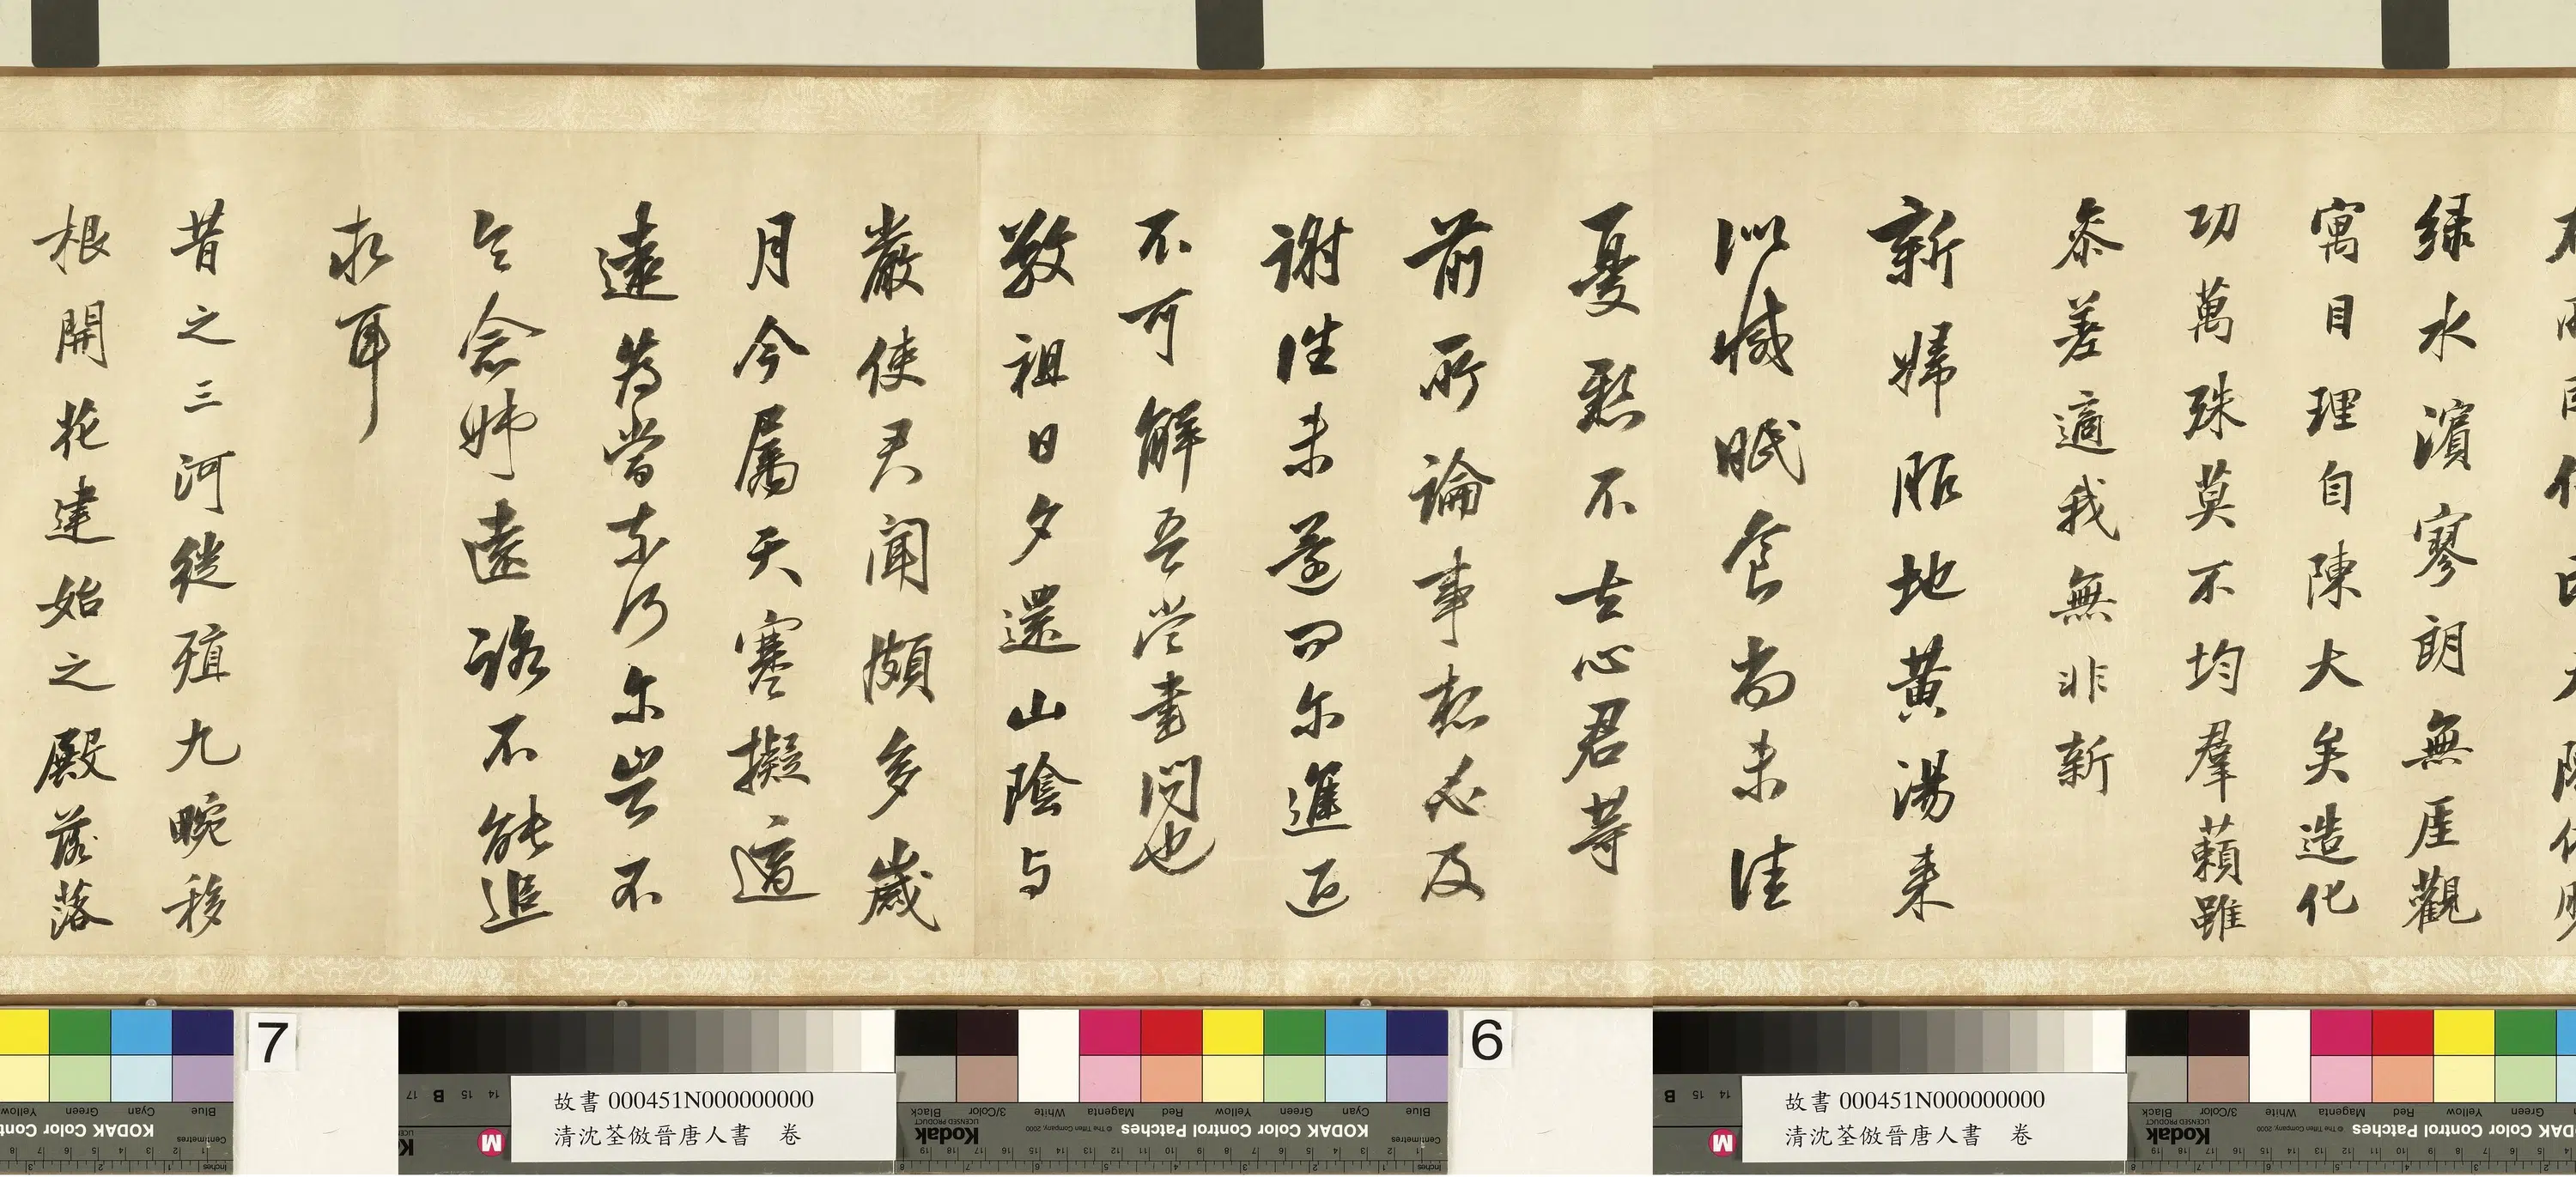 綠水濱寥朗無厓觀
寓目理自陳大矣造化
功萬殊莫不均羣藾雖
叅差適我無非新
新婦服地黃湯來
似減眠食尚未佳
憂懸不去心君等
前所論事想必及
謝生未還何尓進退
不可解吾當書問也
敬祖日夕還山陰与
嚴使君聞頗多歲
月今屬天寒擬適
遠為當奈何尓豈不
令念姊遠路不能追
求耳
昔之三河徙殖九畹移
根開花建始之殿落落
7
6
故書 000451N000000000
清沈荃倣晉唐人書 卷
故書 000451N000000000
清沈荃倣晉唐人書 卷
Blue Cyan Green Yellow
KODAK Color Control Patches
Kodak
LICENSED PRODUCT
Blue Cyan Green Yellow Red Magenta White 3/Color Black
KODAK Color Control Patches
© The Tiffen Company, 2000
Centimetres
Inches